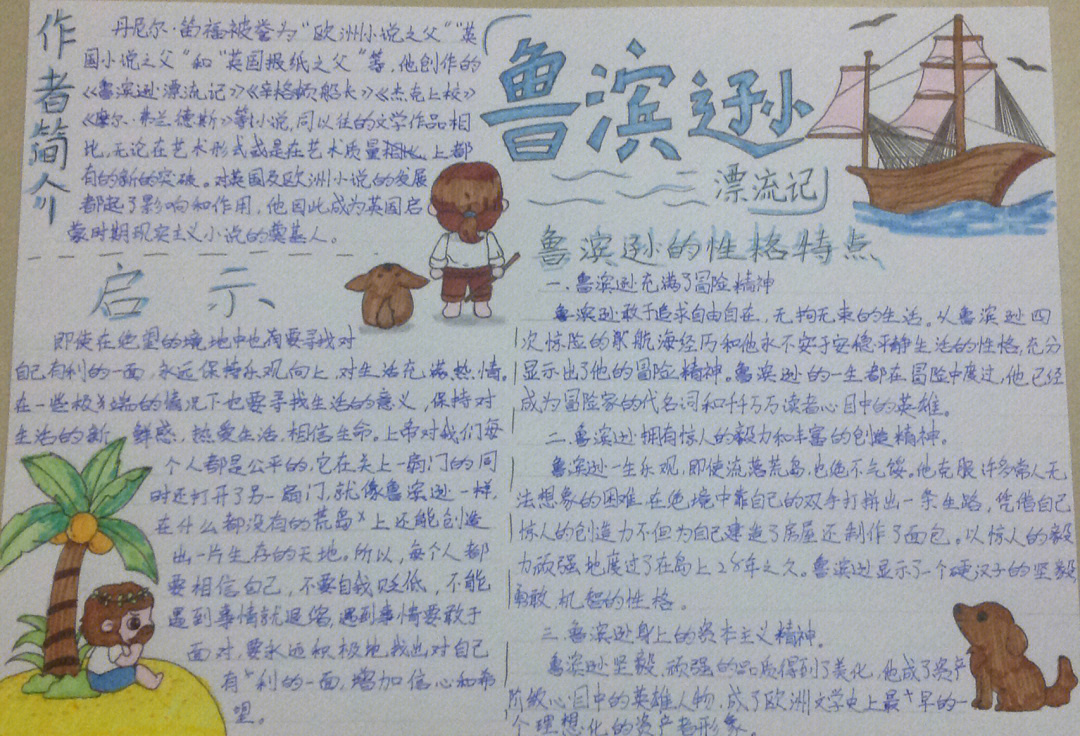 作者简介
丹尼尔·笛福被誉为“欧洲小说之父”“英
国小说之父”和“英国报纸之父”等,他创作的
《鲁滨逊漂流记》《辛格顿船长》《杰克上校》
《摩尔·弗兰德斯》等小说,同以往的文学作品相
比,无论在艺术形式或是在艺术质量相比,上都
有的新的突破。对英国及欧洲小说的发展
都起了影响和作用,他因此成为英国启
蒙时期现实主义小说的奠基人。
启示
即使在绝望的境地中也有要寻找对
自己有利的一面,永远保持乐观向上,对生活充满热情。
在一些极端的情况下也要寻找生活的意义,保持对
生活的新鲜感,热爱生活,相信生命。上帝对我们每
个人都是公平的,它在关上一扇门的同
时还打开了另一扇门,就像鲁滨逊一样,
在什么都没有的荒岛上还能创造
出一片生存的天地。所以,每个人都
要相信自己,不要自我贬低,不能
遇到事情就退缩,遇到事情要敢于
面对,要永远积极地找出对自己
有利的一面,增加信心和希
望。
鲁滨逊
漂流记
鲁滨逊的性格特点
一.鲁滨逊充满了冒险精神
鲁滨逊敢于追求自由自在,无拘无束的生活。从鲁滨逊四
次惊险的航海经历和他永不安于安稳平静生活的性格,充分
显示出了他的冒险精神。鲁滨逊的一生都在冒险中度过,他已经
成为冒险家的代名词和千千万万读者心目中的英雄。
二.鲁滨逊拥有惊人的毅力和丰富的创造精神。
鲁滨逊一生乐观,即使流落荒岛,也绝不气馁。他克服许多常人无
法想象的困难,在绝境中靠自己的双手打拼出一条生路,凭借自己
惊人的创造力不但为自己建造了房屋还制作了面包。以惊人的毅
力顽强地度过了在岛上28年之久。鲁滨逊显示了一个硬汉子的坚毅,
勇敢,机智的性格。
三.鲁滨逊身上的资本主义精神.
鲁滨逊坚毅,顽强的品质得到了美化,他成了资产
阶级心目中的英雄人物,成了欧洲文学史上最早的一
个理想化的资产者形象。